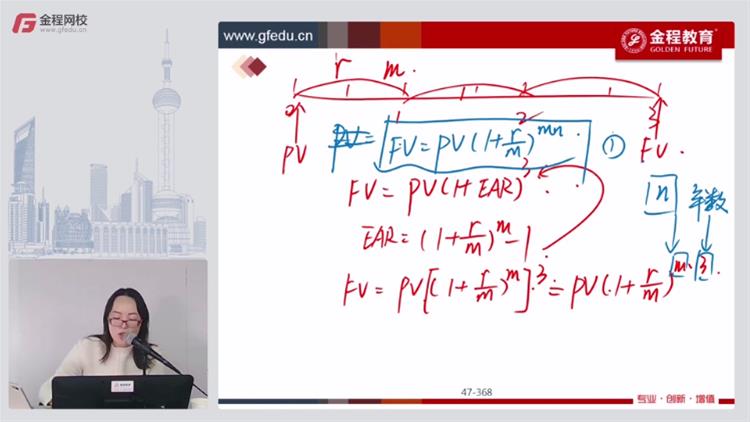 金程网校
www.gfedu.cn
www.gfedu.cn
金程教育
GOLDEN FUTURE
r m.
0 1 2 3
PV FV.
FV = PV(1+r/m)^mn. ①
FV = PV(1+EAR)^3.
n 年数
EAR = (1+r/m)^m - 1.
FV = PV[(1+r/m)^m].3 = PV(1+r/m)^m.3.
47-368
专业·创新·增值